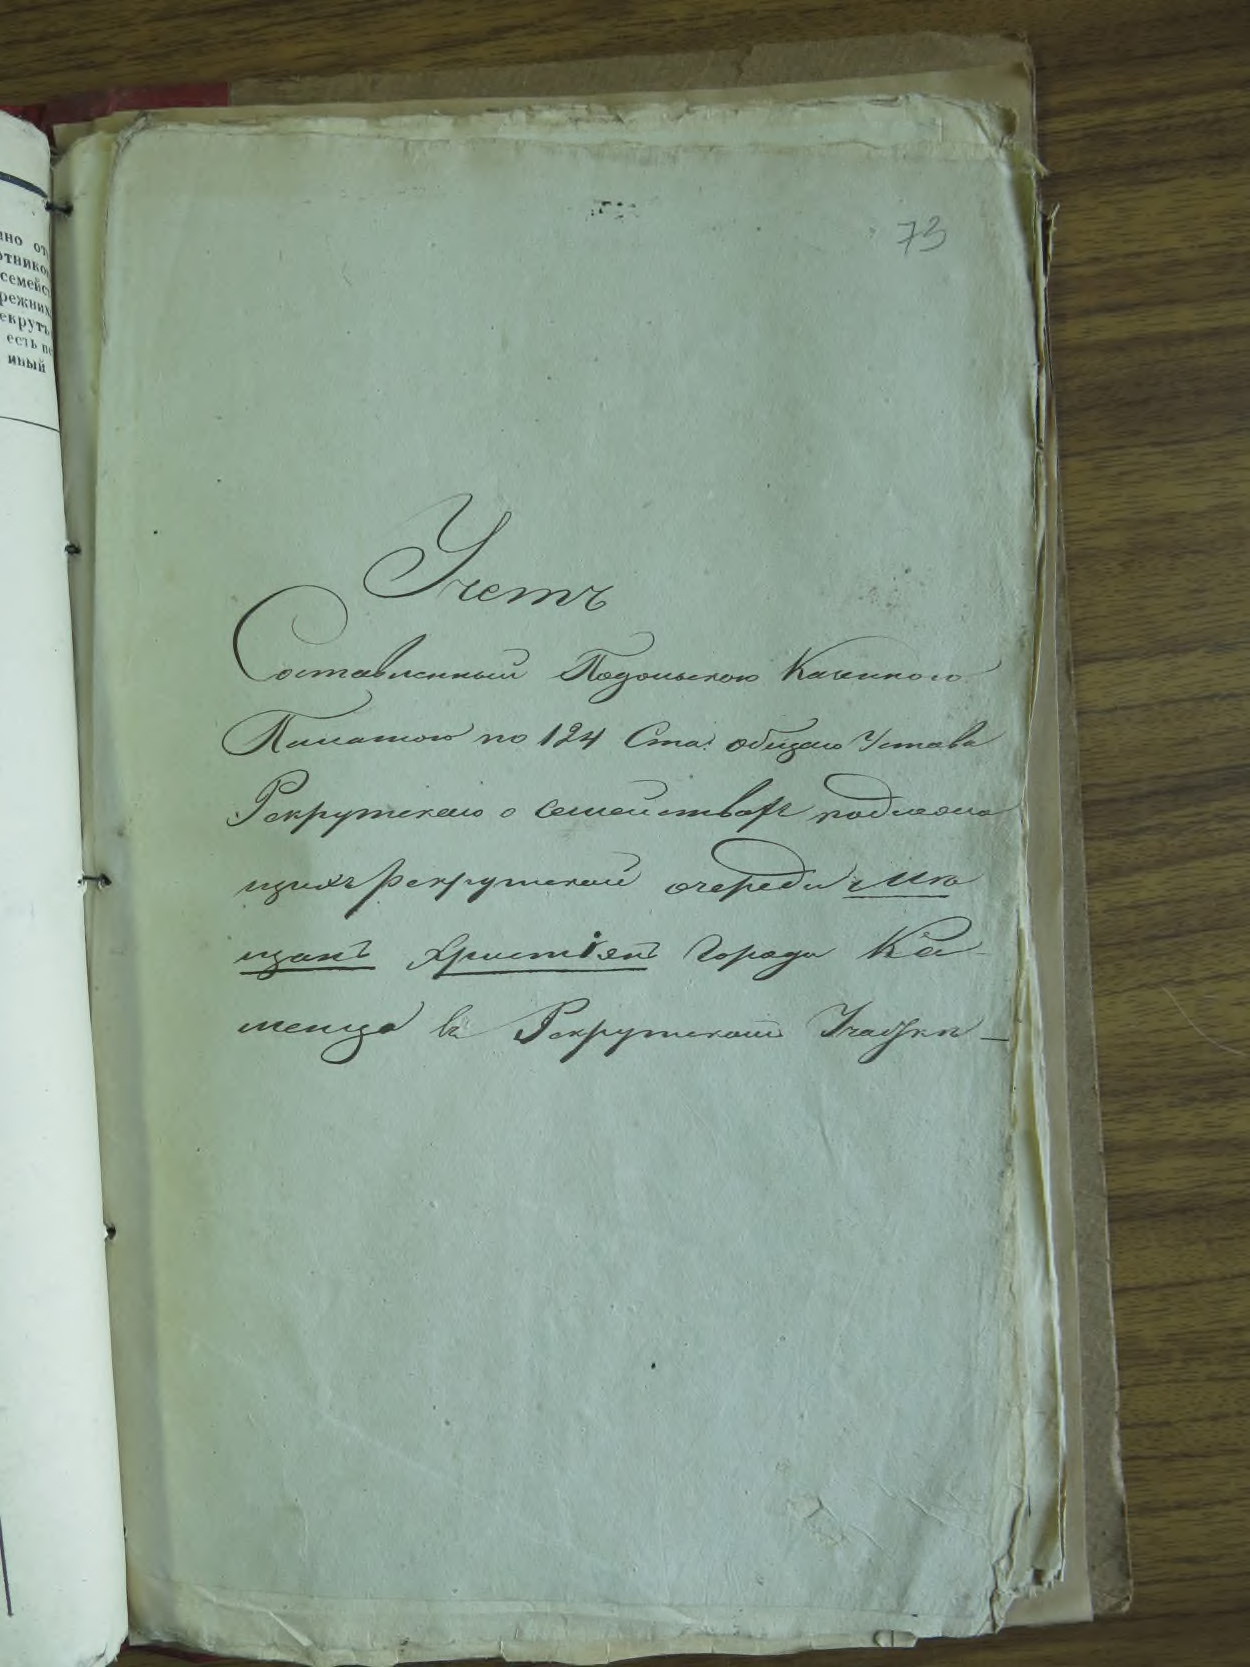 но от
отнико
семейс
режних
екрутъ
есть не
иный
73
Учетъ
Составленный Подольскою Казенною
Палатою по 124 Ста: общаго Устава
Рекрутскаго о семействахъ подлежа
щихъ рекрутской очереди Мѣ
щанъ Христіянъ Города Ка-
менца въ Рекрутскомъ Участкѣ –